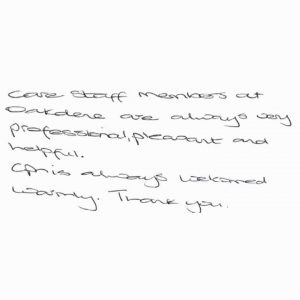 Care Staff members at
Oakdene are always very
professional, pleasant and
helpful.
CPN is always welcomed
warmly. Thank you.